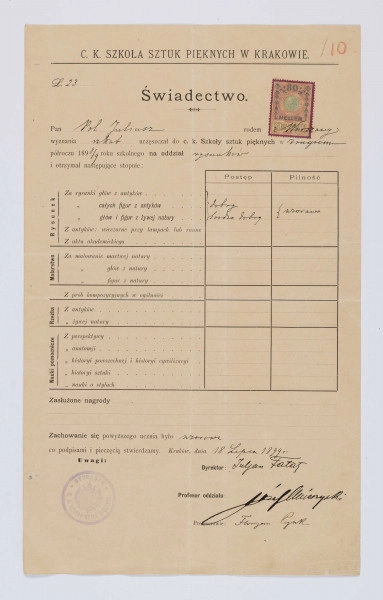 /10
C. K. SZKOŁA SZTUK PIĘKNYCH W KRAKOWIE.
L. 23
Świadectwo.
50
HELLER
Pan Pol Juliusz rodem z Warszawy
wyznania uczęszczał do c. k. Szkoły sztuk pięknych w drugiem
półroczu 1898/9 roku szkolnego na oddział rysunków
i otrzymał następujące stopnie:
Postęp Pilność
Rysunek
Za rysunki głów z antyków
„ całych figur z antyków dobry
„ głów i figur z żywej natury bardzo dobry wzorowa
Z antyków: wieczorne przy lampach lub rano
Z aktu akademickiego
Malarstwo
Za malowanie martwej natury
„ głów z natury
„ figur z natury
Z prób kompozycyjnych w ogólności
Rzeźba
Z antyków
„ żywej natury
Nauki pomocnicze
Z perspektywy
„ anatomji
„ historyi powszechnej i historyi cywilizacyi
„ historyi sztuki
„ nauki o stylach
Zasłużone nagrody
Zachowanie się powyższego ucznia było wzorowe
co podpisami i pieczęcią stwierdzamy. Kraków, dnia 18 Lipca 1899 r.
Uwagi:
Dyrektor: Juljan Fałat
Profesor oddziału:
Józef Unierzyski